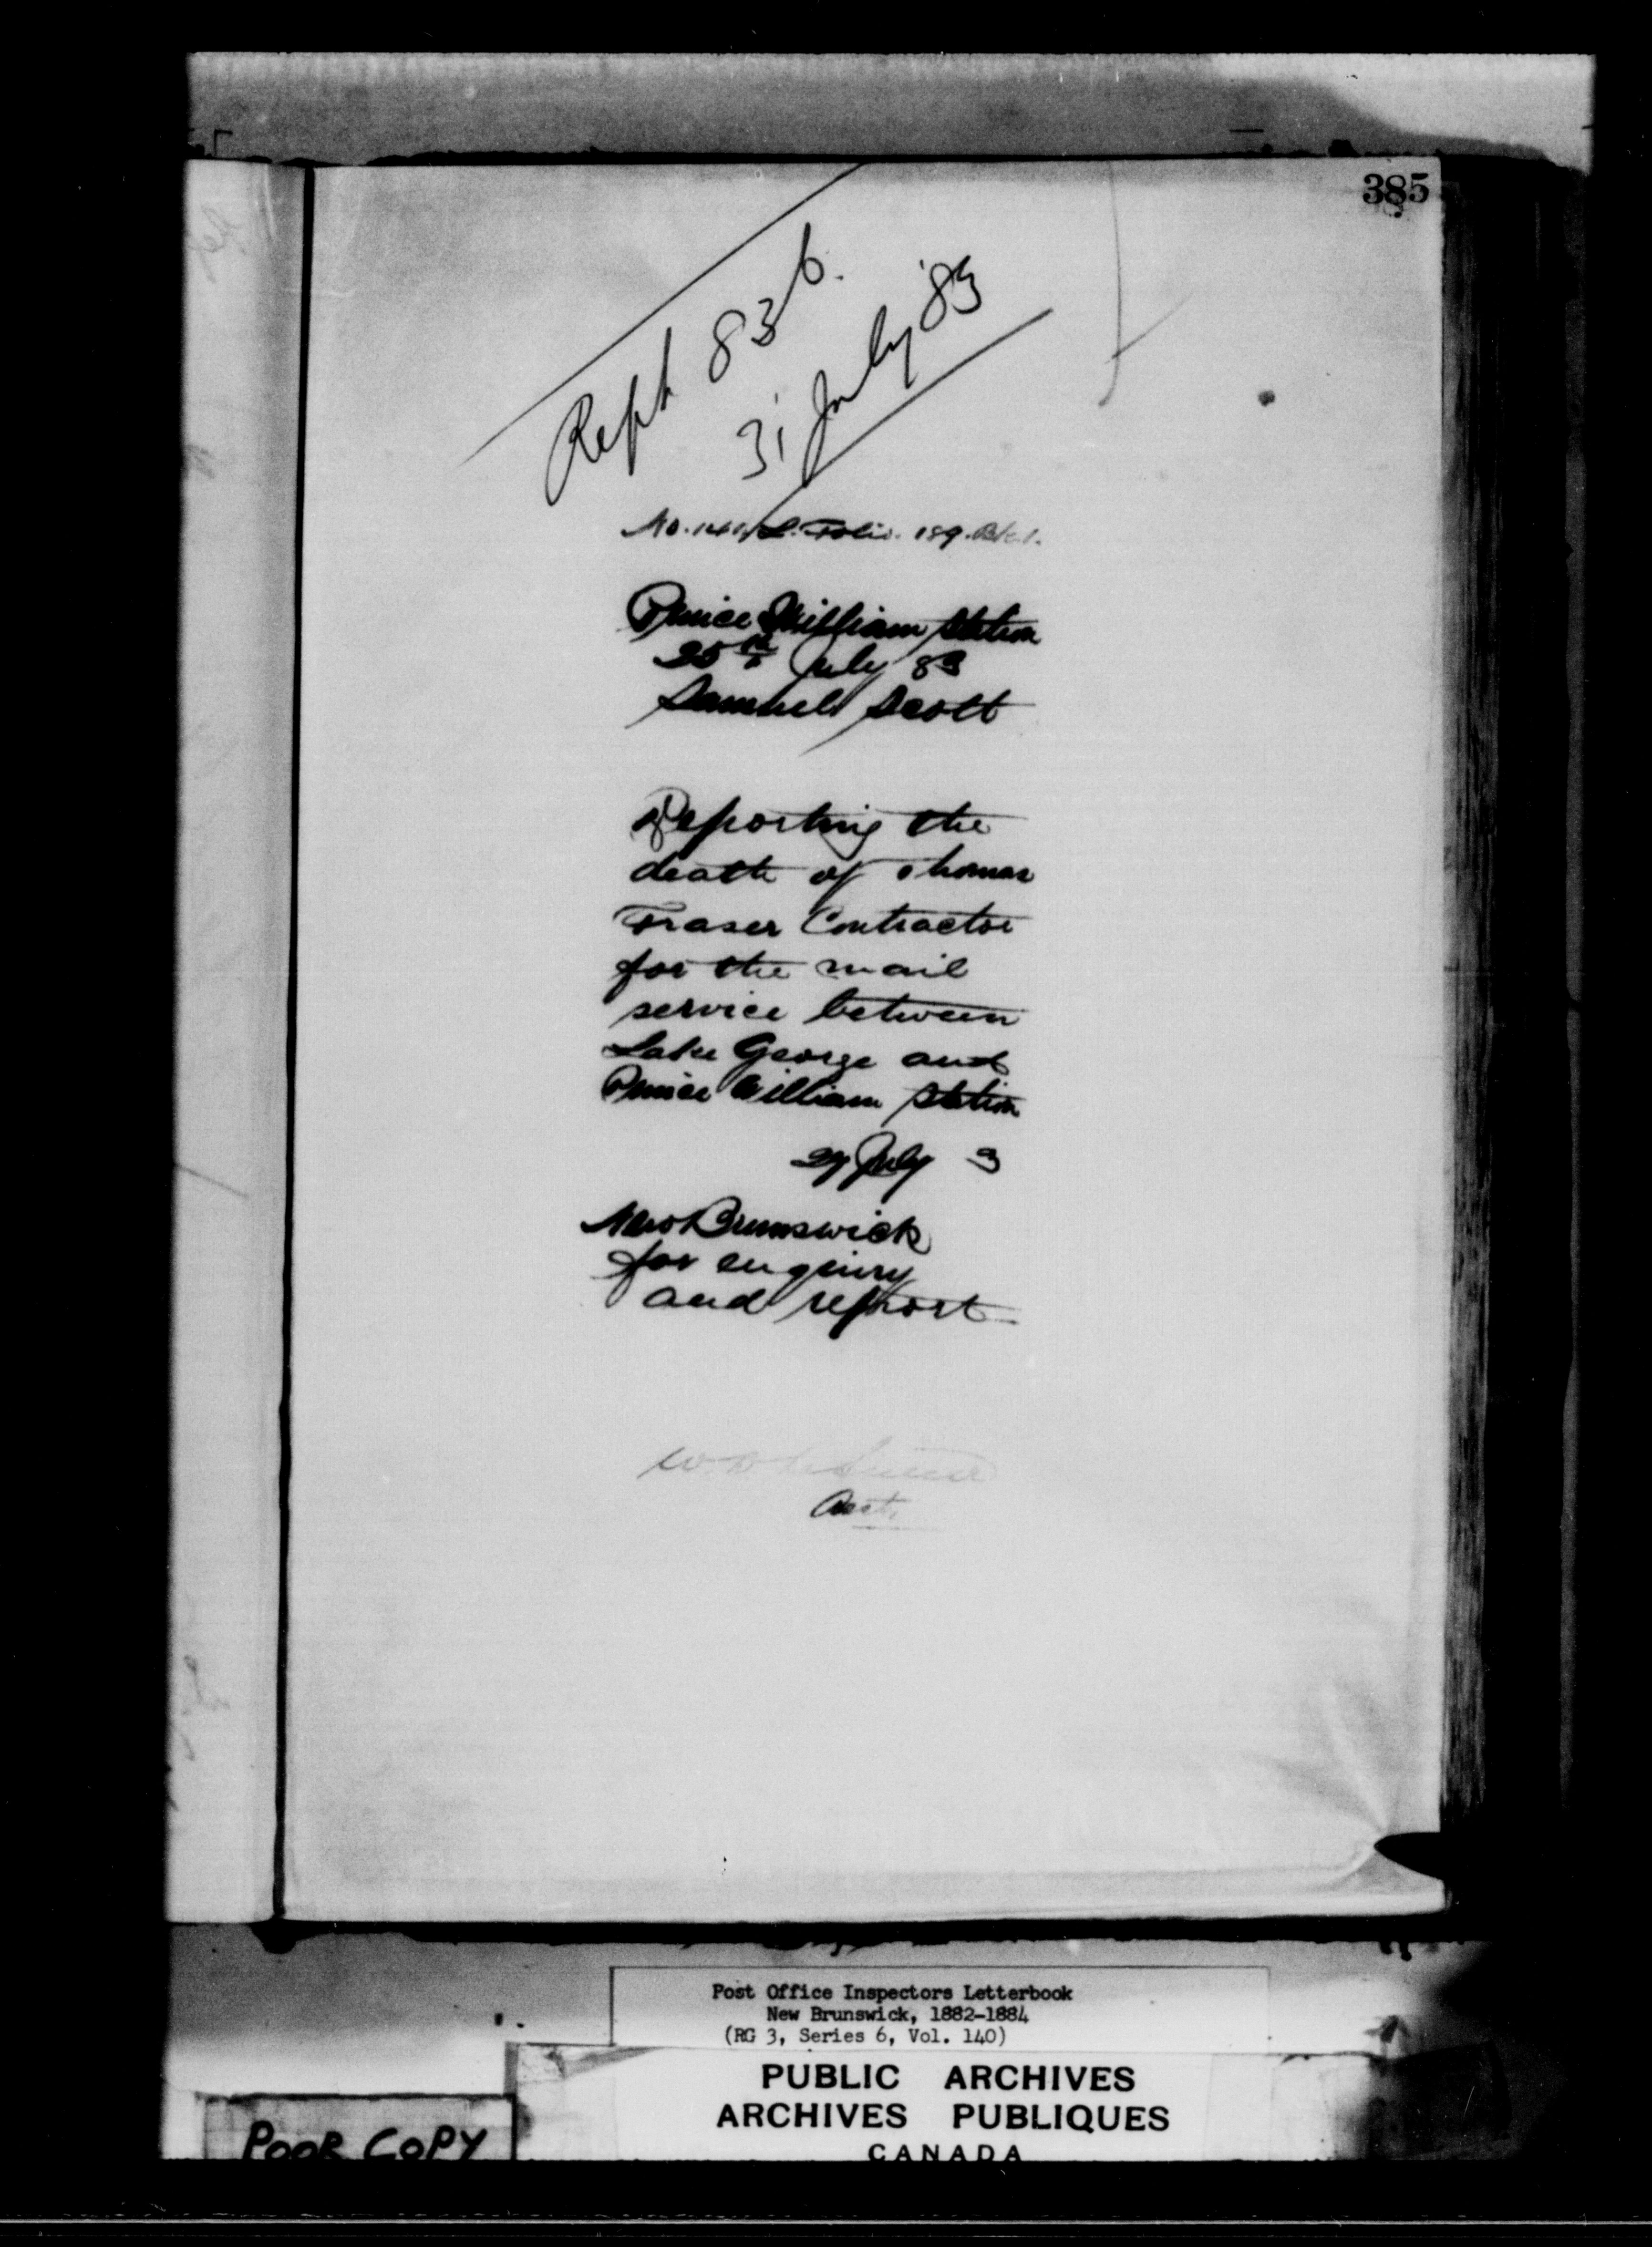 385
Rept 836.
31 July '83
No. L. Folio. 189. Bk 1.
Prince William Station
25th July 83
Samuel Scott
Reporting the
death of Thomas
Fraser Contractor
for the mail
service between
Lake George and
Prince William Station
27 July 3
New Brunswick
for enquiry
and report
Asst.
Post Office Inspectors Letterbook
New Brunswick, 1882-1884
(RG 3, Series 6, Vol. 140)
PUBLIC ARCHIVES
ARCHIVES PUBLIQUES
CANADA
POOR COPY